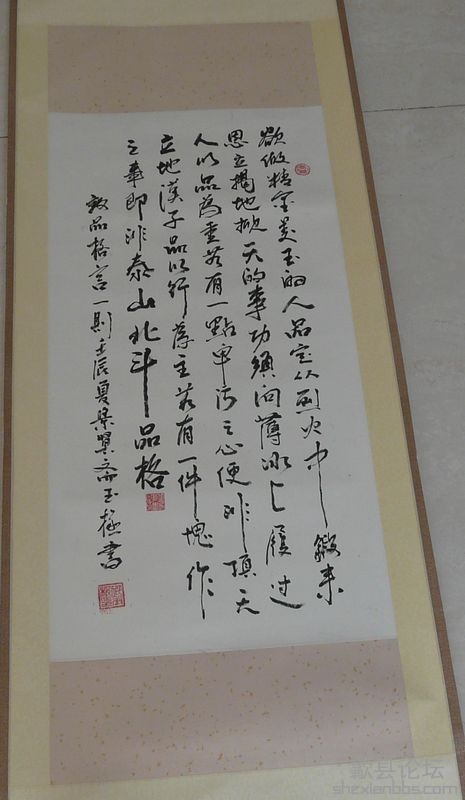 欲做精金美玉的人品定从烈火中鍛来
思立揭地掀天的事功須向薄冰上履过
人以品為重若有一點卑污之心便非頂天
立地漢子品以行為主若有一件愧作
之事即非泰山北斗品格
敦品格言一則壬辰夏景翼斋玉書
歙县论坛
shexianbbs.com